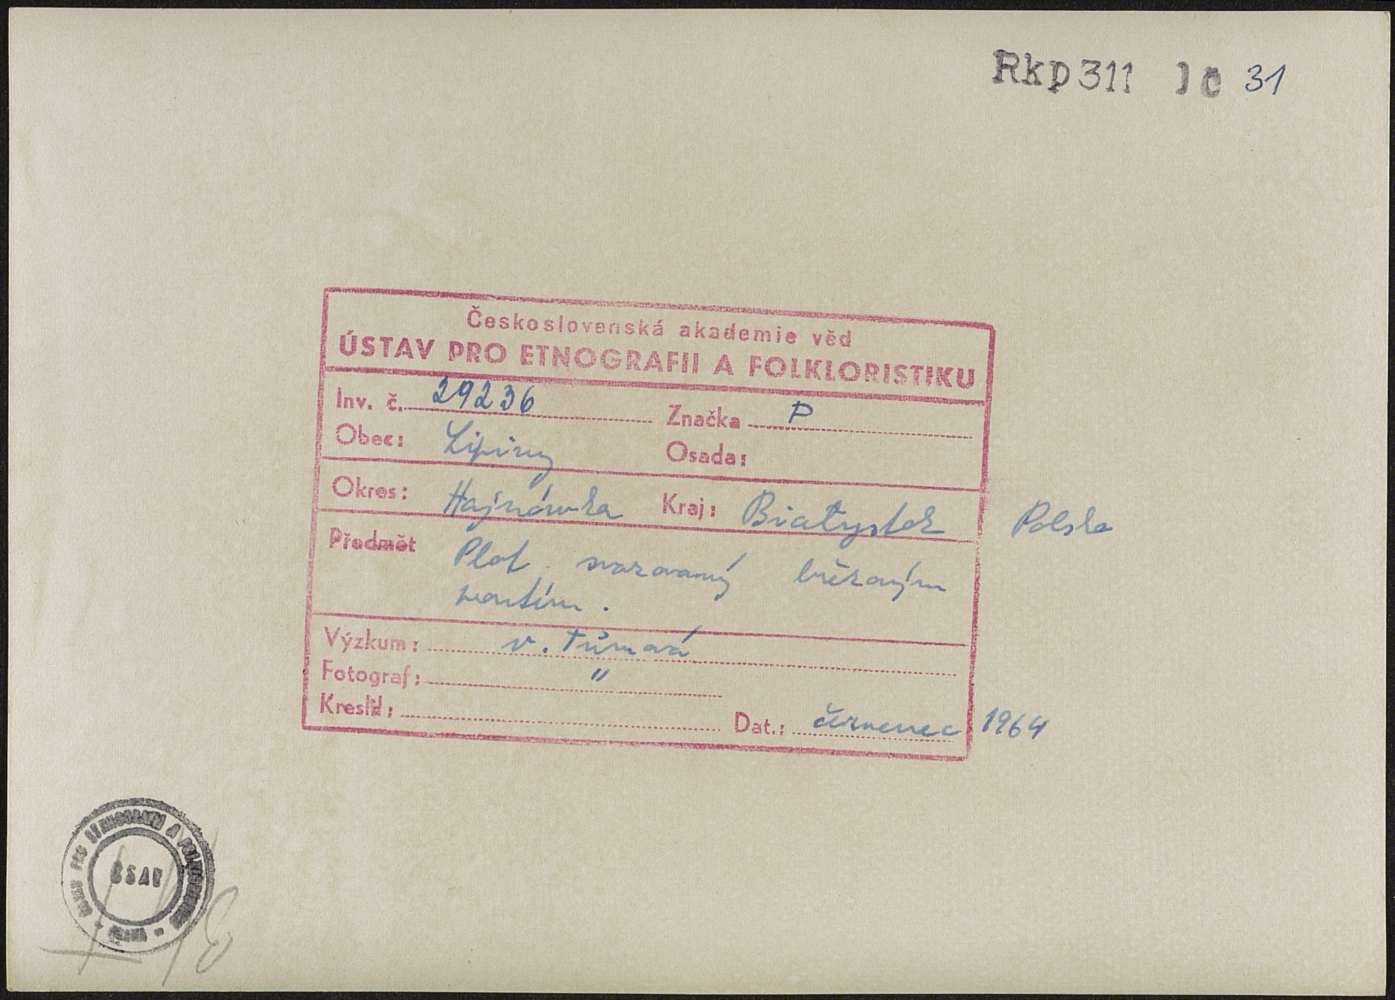 Rkp 311 31
Československá akademie věd
ÚSTAV PRO ETNOGRAFII A FOLKLORISTIKU
Inv. č. 29236 Značka P
Obec: Lipiny Osada:
Okres: Hajnówka Kraj: Białystok Polsko
Předmět Plot svazovaný březovým
proutím.
Výzkum: V. Tůmová
Fotograf: "
Kreslil:
Dat.: červenec 1964
ÚSTAV PRO ETNOGRAFII A FOLKLORISTIKU
ČSAV